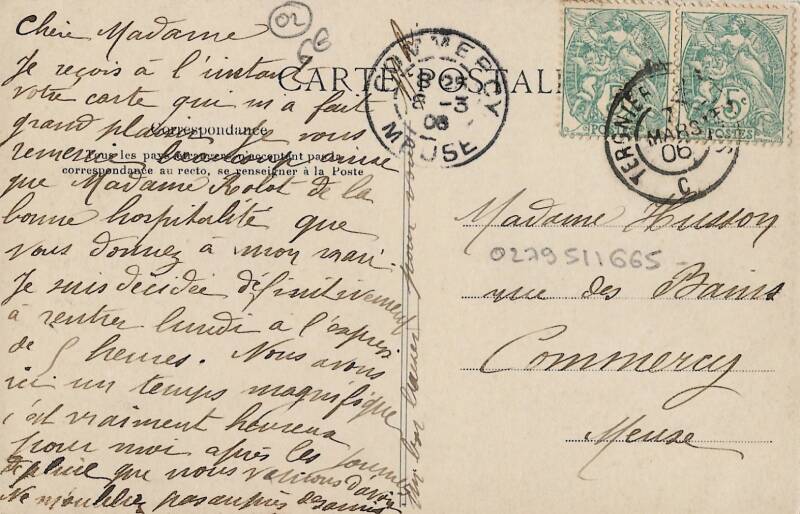 02
6E
CARTE POSTALE
Correspondance
Tous les pays étrangers n'acceptent pas la
correspondance au recto, se renseigner à la Poste
Chère Madame
Je reçois à l'instant
votre carte qui m'a fait
grand plaisir Je vous
remercie
que Madame Rolot de la
bonne hospitalité que
vous donnez à mon mari.
Je suis décidée définitivement
à rentrer lundi à l'express
de 5 heures. Nous avons
ici un temps magnifique
c'est vraiment heureux
pour moi après les journées
de pluie que nous venons d'avoir
Ne m'oubliez pas auprès des amis
Un bon baiser pour vous
COMMERCY
25
-3
06
MEUSE
5c
POSTES
5c
POSTES
TERGNIER
MARS
06
Madame Husson
0279511665
rue des Bains
Commercy
Meuse